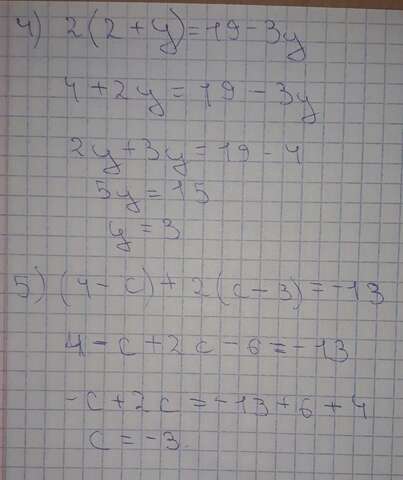 4) 2(2+y)=19-3y
4+2y=19-3y
2y+3y=19-4
5y=15
y=3
5) (4-c)+2(c-3)=-13
4-c+2c-6=-13
-c+2c=-13+6+4
c=-3